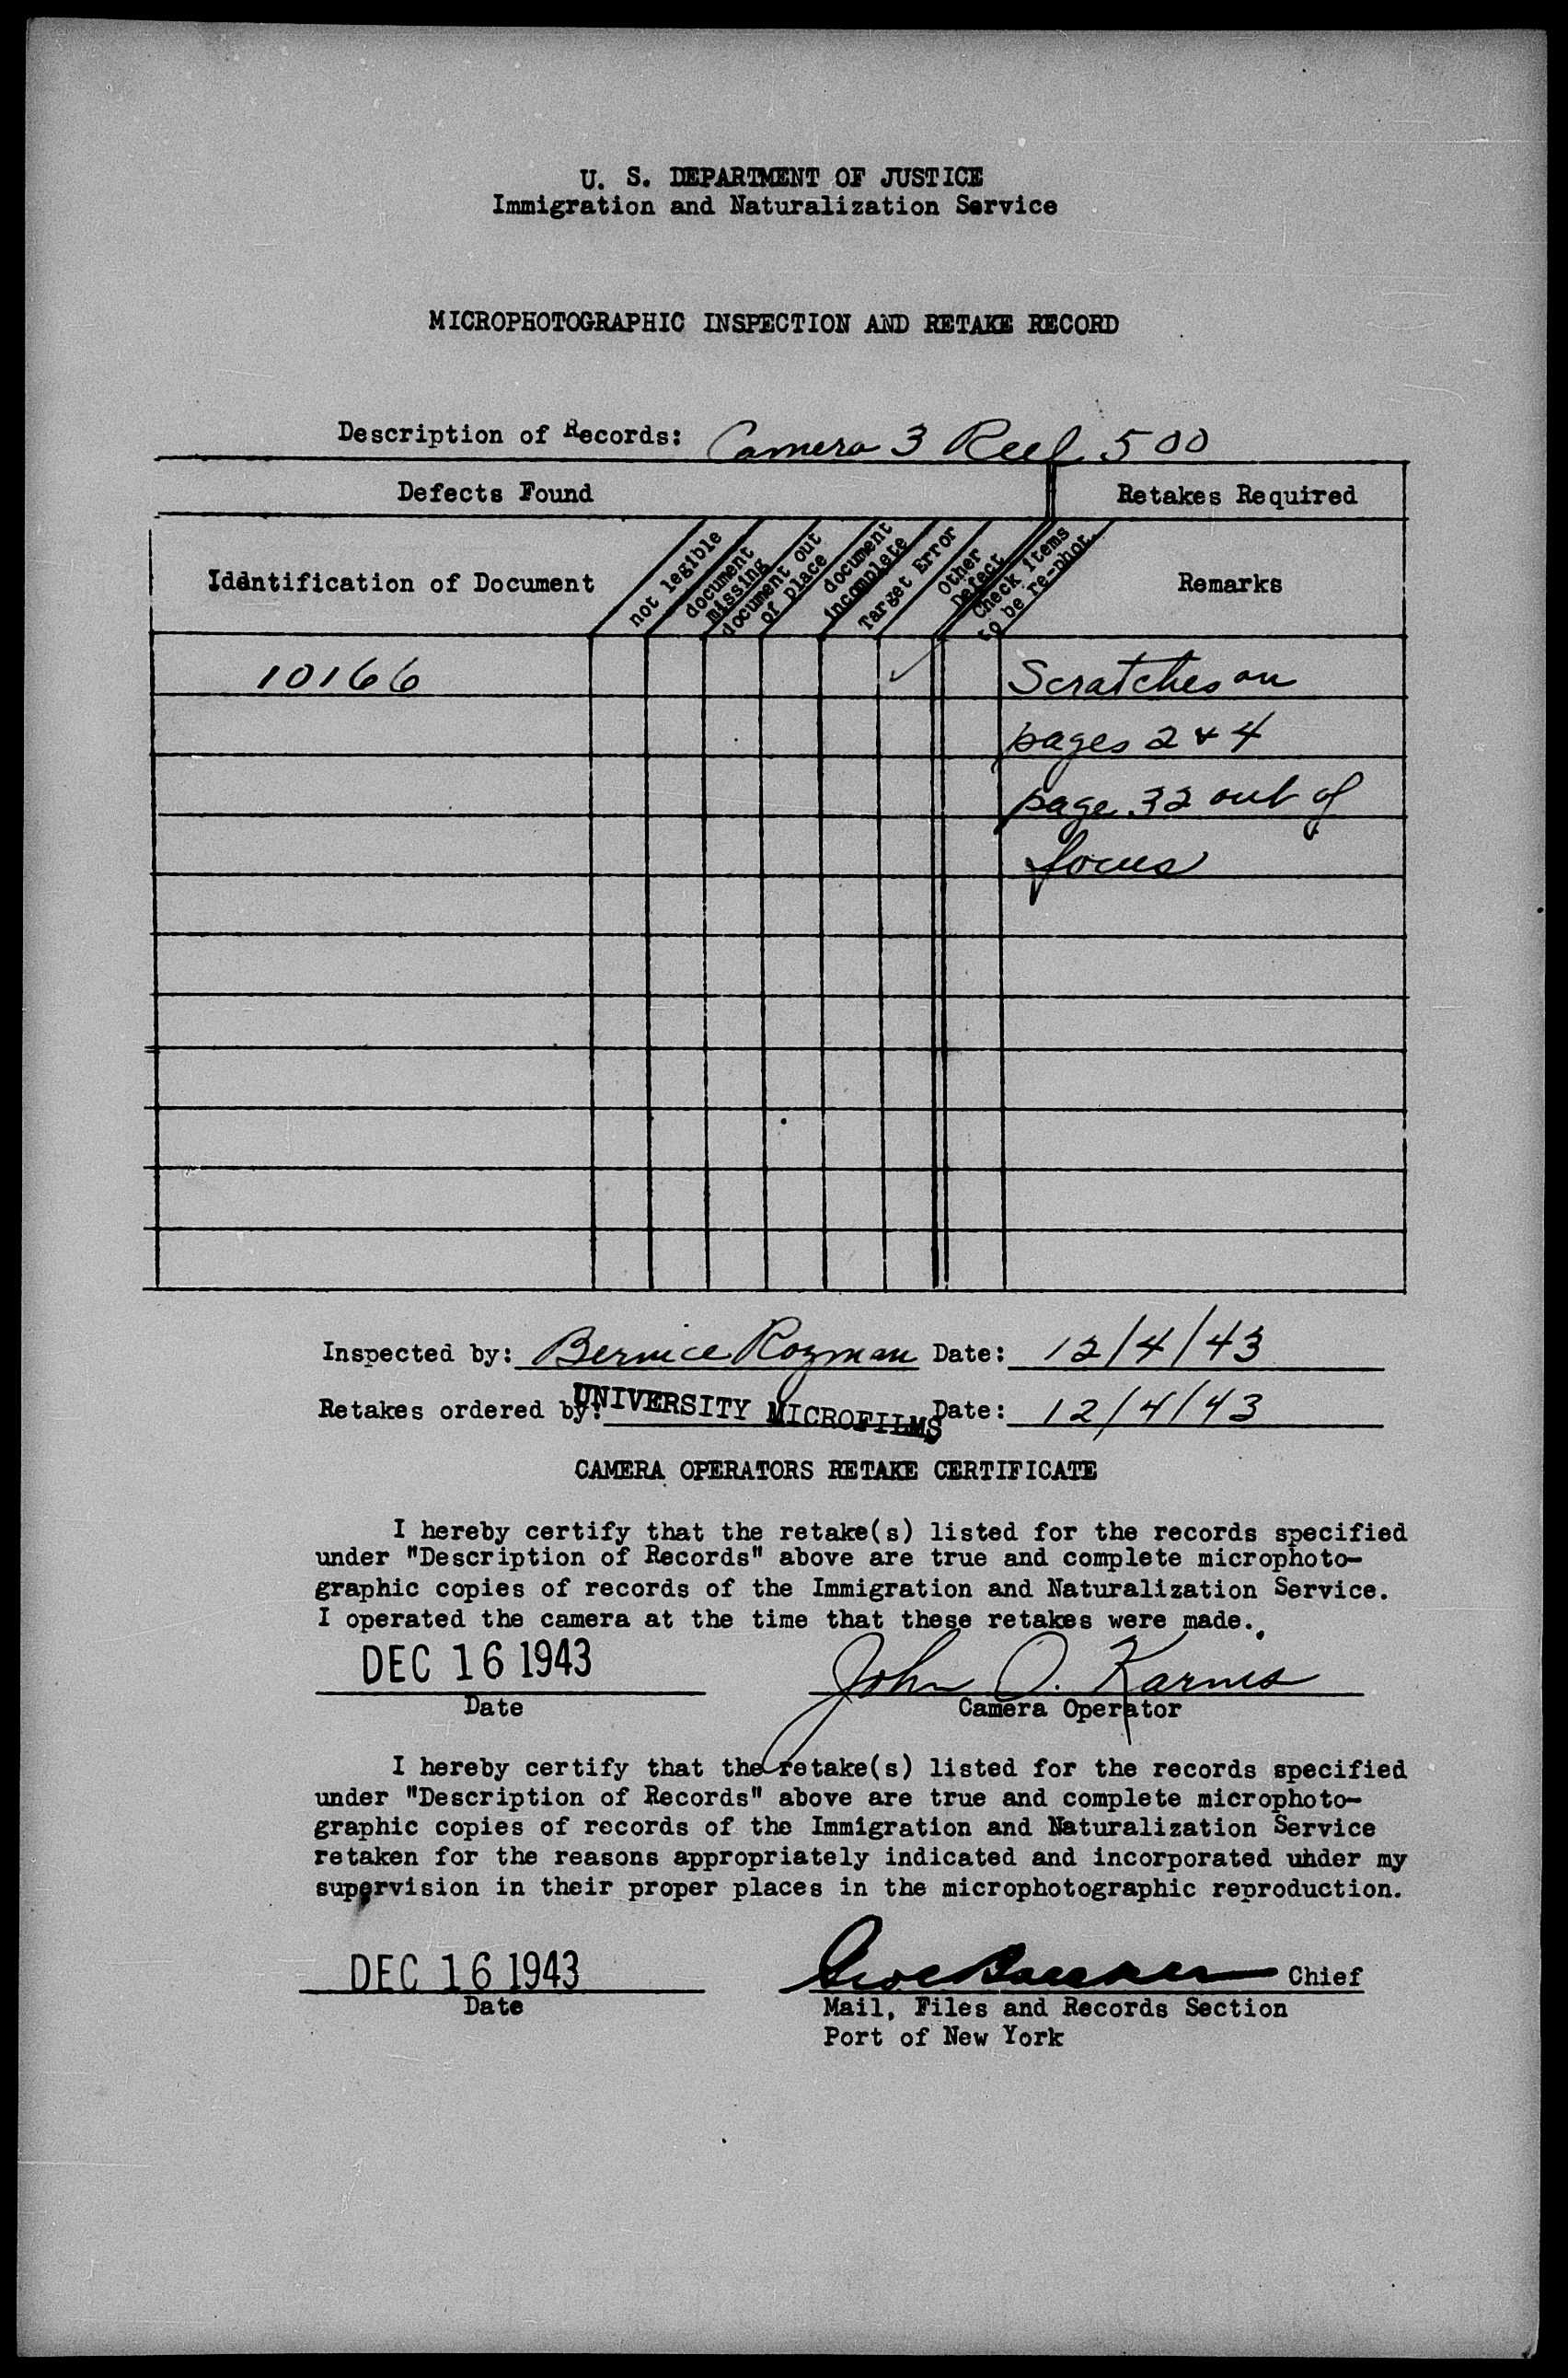 U. S. DEPARTMENT OF JUSTICE
Immigration and Naturalization Service
MICROPHOTOGRAPHIC INSPECTION AND RETAKE RECORD
Description of Records: Camera 3 Reel 500
Defects Found
Retakes Required
Identification of Document
not legible
document missing
document out of place
document incomplete
Target Error
Other Defect
Check items to be re-phot.
Remarks
10166 ✓ Scratches on
pages 2 & 4
page 32 out of
focus
Inspected by: Bernice Rozman Date: 12/4/43
Retakes ordered by: UNIVERSITY MICROFILMS Date: 12/4/43
CAMERA OPERATORS RETAKE CERTIFICATE
I hereby certify that the retake(s) listed for the records specified
under "Description of Records" above are true and complete microphoto-
graphic copies of records of the Immigration and Naturalization Service.
I operated the camera at the time that these retakes were made.
DEC 16 1943 John O. Karnes
Date Camera Operator
I hereby certify that the retake(s) listed for the records specified
under "Description of Records" above are true and complete microphoto-
graphic copies of records of the Immigration and Naturalization Service
retaken for the reasons appropriately indicated and incorporated under my
supervision in their proper places in the microphotographic reproduction.
DEC 16 1943 Chief
Date Mail, Files and Records Section
Port of New York